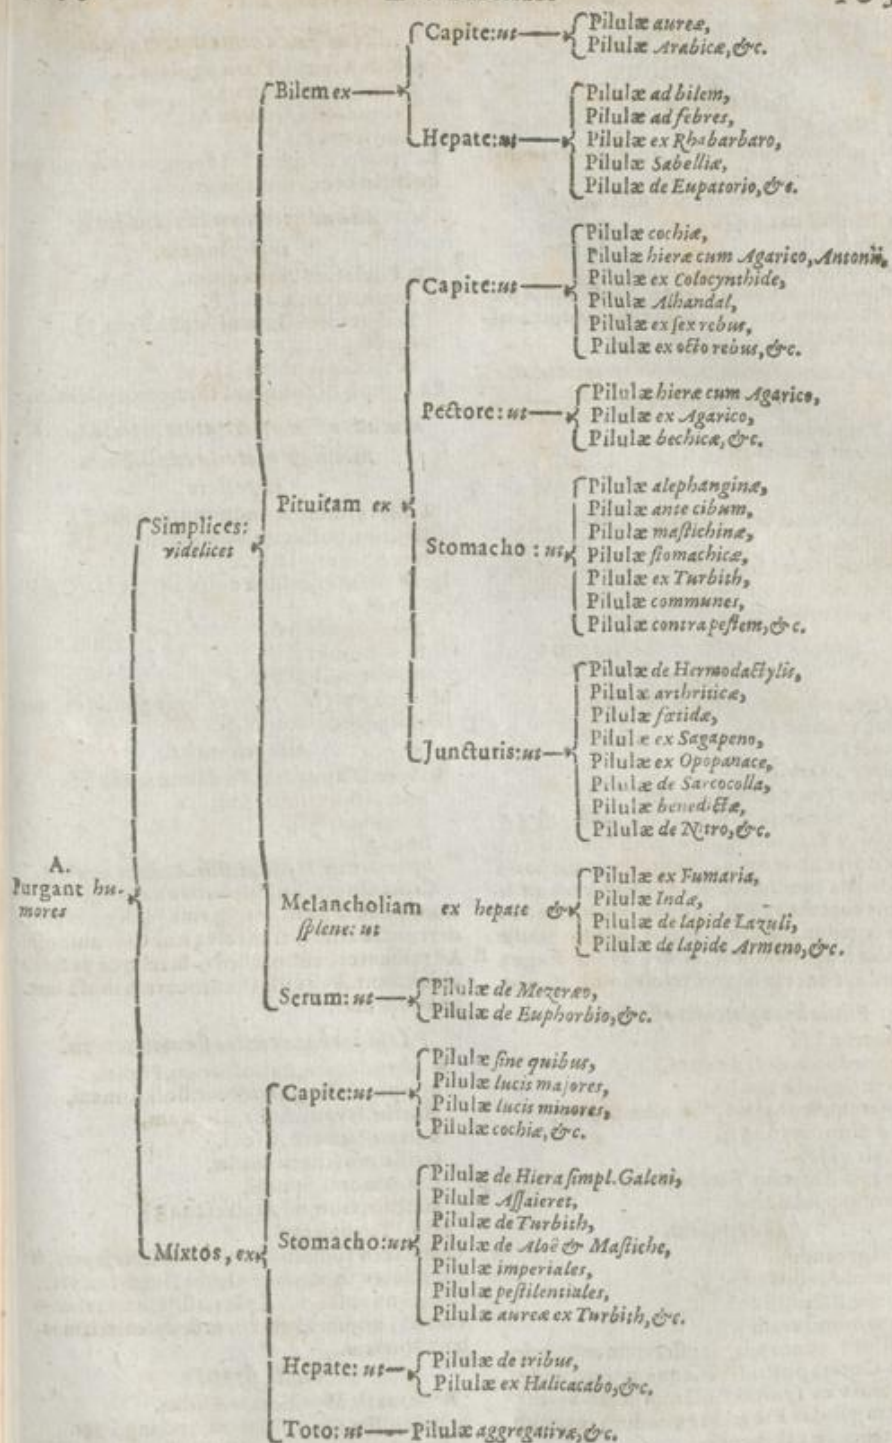 Capite: ut
Pilulæ aureæ,
Pilulæ Arabicæ, &c.
Bilem ex
Hepate: ut
Pilulæ ad bilem,
Pilulæ ad febres,
Pilulæ ex Rhabarbaro,
Pilulæ Sabelliæ,
Pilulæ de Eupatorio, &c.
Capite: ut
Pilulæ cochiæ,
Pilulæ hieræ cum Agarico, Antonii,
Pilulæ ex Colocynthide,
Pilulæ Alhandal,
Pilulæ ex ſex rebus,
Pilulæ ex octo rebus, &c.
Pectore: ut
Pilulæ hieræ cum Agarico,
Pilulæ ex Agarico,
Pilulæ bechicæ, &c.
Pituitam ex
Simplices:
videlicet
Stomacho: ut
Pilulæ alephanginæ,
Pilulæ ante cibum,
Pilulæ maſtichinæ,
Pilulæ ſtomachicæ,
Pilulæ ex Turbith,
Pilulæ communes,
Pilulæ contra peſtem, &c.
Juncturis: ut
Pilulæ de Hermodactylis,
Pilulæ arthriticæ,
Pilulæ fœtidæ,
Pilulæ ex Sagapeno,
Pilulæ ex Opopanace,
Pilulæ de Sarcocolla,
Pilulæ benedictæ,
Pilulæ de Nitro, &c.
A.
Purgant hu-
mores
Melancholiam ex hepate &
ſplene: ut
Pilulæ ex Fumaria,
Pilulæ Indæ,
Pilulæ de lapide Lazuli,
Pilulæ de lapide Armeno, &c.
Serum: ut
Pilulæ de Mezeræo,
Pilulæ de Euphorbio, &c.
Capite: ut
Pilulæ ſine quibus,
Pilulæ lucis majores,
Pilulæ lucis minores,
Pilulæ cochiæ, &c.
Mixtos, ex
Stomacho: ut
Pilulæ de Hiera ſimpl. Galeni,
Pilulæ Aſſaieret,
Pilulæ de Turbith,
Pilulæ de Aloë & Maſtiche,
Pilulæ imperiales,
Pilulæ peſtilentiales,
Pilulæ aureæ ex Turbith, &c.
Hepate: ut
Pilulæ de tribus,
Pilulæ ex Halicacabo, &c.
Toto: ut
Pilulæ aggregativæ, &c.